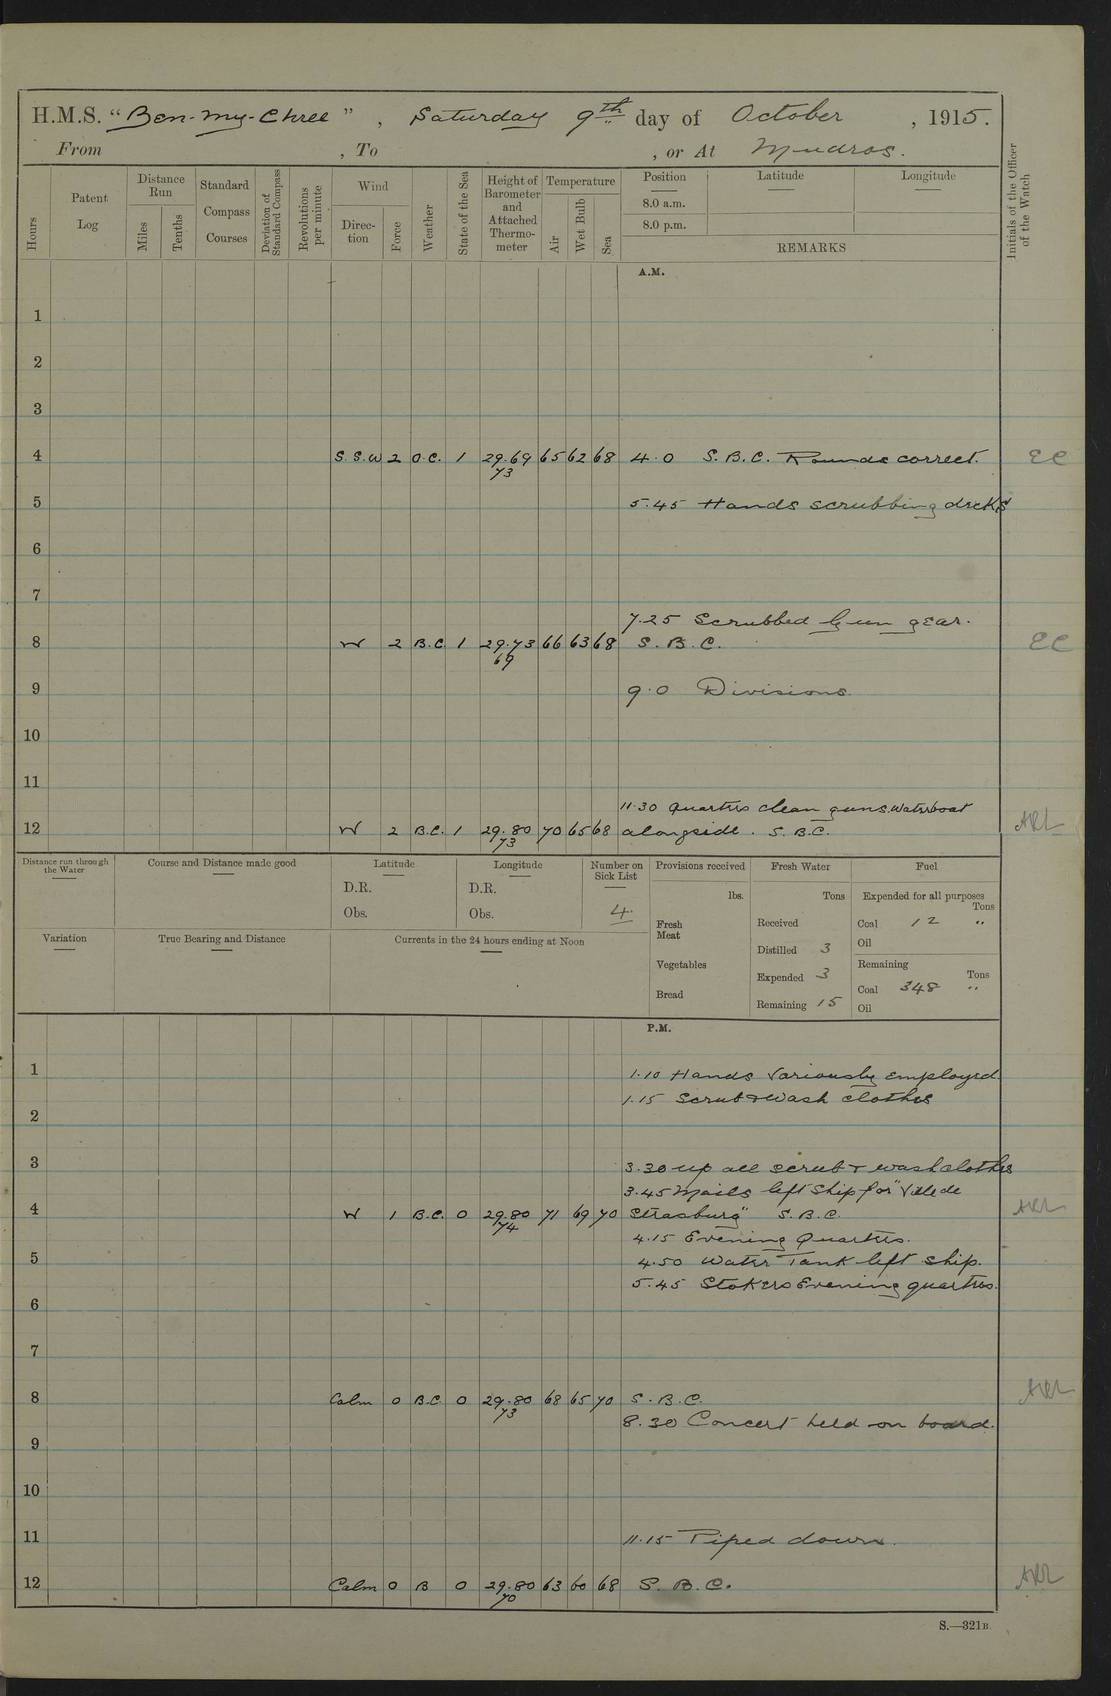 H.M.S. "Ben-my-Chree", Saturday 9th day of October, 1915.
From , To , or At Mudros.
Hours
Patent Log
Distance Run
Miles
Tenths
Standard Compass Courses
Deviation of Standard Compass
Revolutions per minute
Wind
Direction
Force
Weather
State of the Sea
Height of Barometer and Attached Thermometer
Temperature
Air
Wet Bulb
Sea
Position
Latitude
Longitude
8.0 a.m.
8.0 p.m.
REMARKS
Initials of the Officer of the Watch
A.M.
1
2
3
4 S.S.W 2 O.C. 1 29.69 65 62 68 4.0 S.B.C. Rounds correct. EC
73
5 5.45 Hands scrubbing decks
6
7
7.25 Scrubbed Gun gear.
8 W 2 B.C. 1 29.73 66 63 68 S.B.C. EC
69
9 9.0 Divisions
10
11
11.30 Quarters clean guns. Waterboat
12 W 2 B.C. 1 29.80 70 65 68 alongside. S.B.C. ARL
73
Distance run through the Water
Course and Distance made good
Latitude
D.R.
Obs.
Longitude
D.R.
Obs.
Number on Sick List
4
Provisions received
lbs.
Fresh Meat
Vegetables
Bread
Fresh Water
Tons
Received
Distilled 3
Expended 3
Remaining 15
Fuel
Expended for all purposes
Tons
Coal 12 "
Oil
Remaining
Tons
Coal 348 "
Oil
Variation
True Bearing and Distance
Currents in the 24 hours ending at Noon
P.M.
1 1.10 Hands variously employed.
1.15 Scrub & Wash clothes
2
3 3.30 up all scrub & wash clothes
3.45 Mails left Ship for "Ville de
4 W 1 B.C. 0 29.80 71 69 70 Strasburg" S.B.C. ARL
74
4.15 Evening Quarters.
5 4.50 Water Tank left ship.
5.45 Stokers Evening quarters.
6
7
8 Calm 0 B.C. 0 29.80 68 65 70 S.B.C. ARL
73
8.30 Concert held on board.
9
10
11 11.15 Piped down.
12 Calm 0 B 0 29.80 63 60 68 S.B.C. ARL
70
S.—321B.